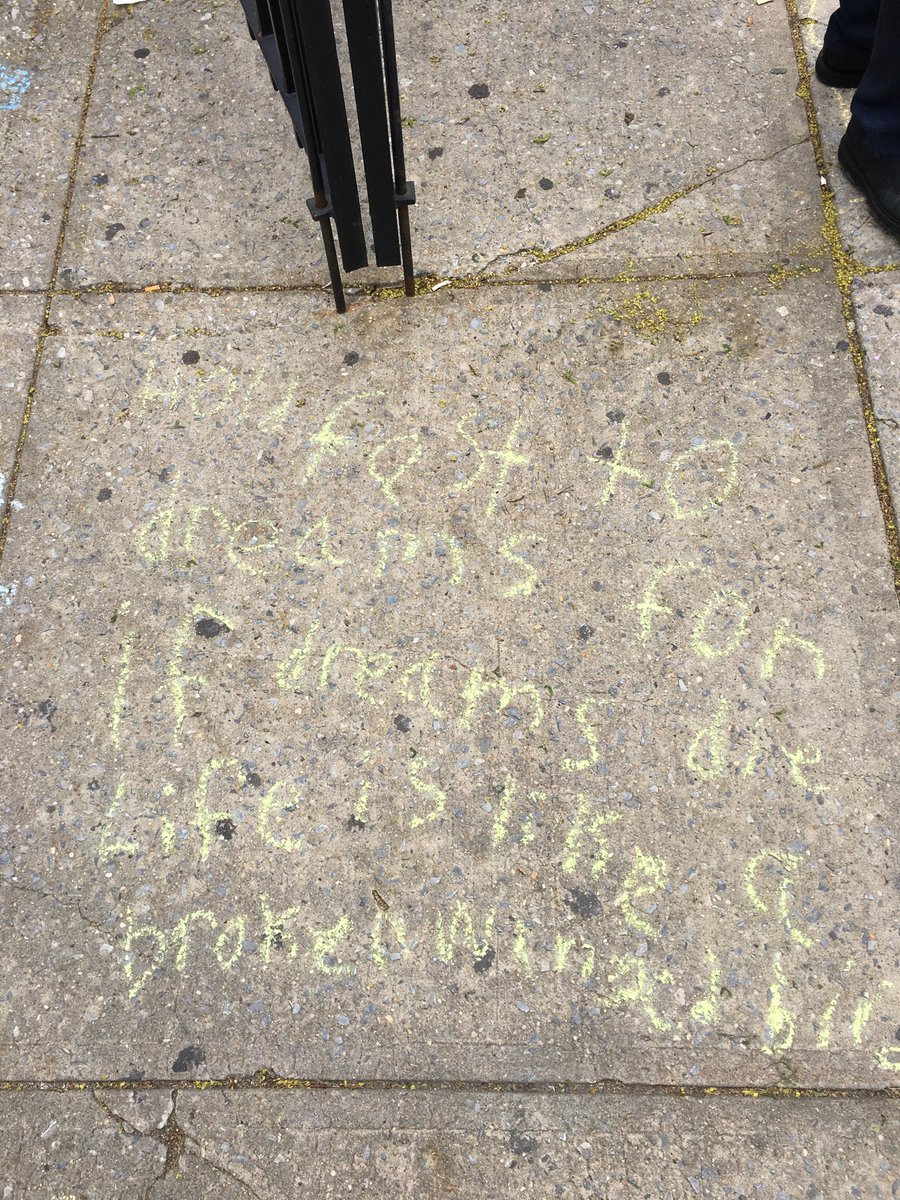 Hold fast to
dreams for
If dreams die
Life is like a
broken winged bir